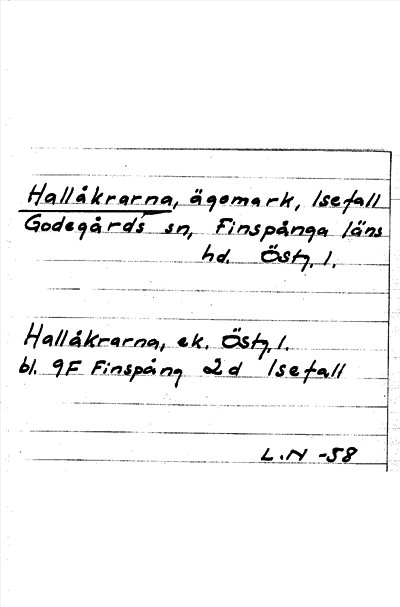 Hallåkrarna, ägomark, Isefall
Godegårds sn, Finspånga läns
hd. Östg. l.
Hallåkrarna, ek. Östg. l.
bl. 9F Finspång 2d Isefall
L.N -58